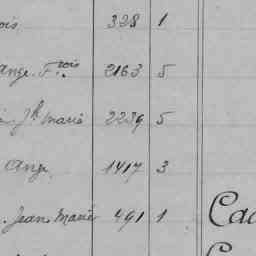 ois 328 1
Ange. Frois 2163 5
Jh Marie 2239 5
Ange 1417 3
. Jean Marie 491 1
Cad